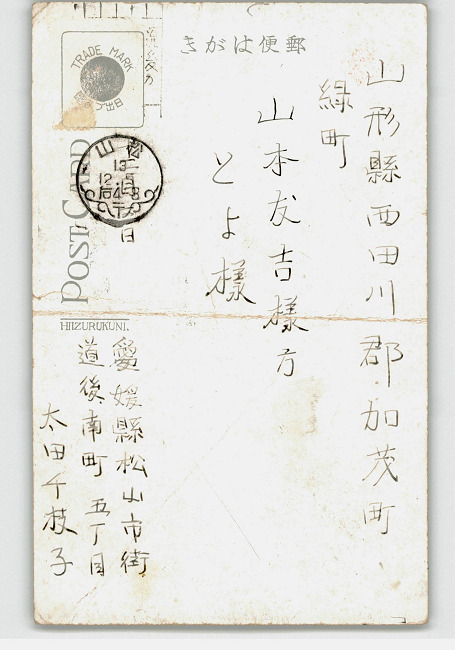 きがは便郵
TRADE MARK
POST CARD
HIIZURUKUNI.
山形縣西田川郡加茂町
緑町
山本友吉様方
とよ様
松山
13
12.5
后4-8
日
愛媛縣松山市街
道後南町五丁目
太田千枝子